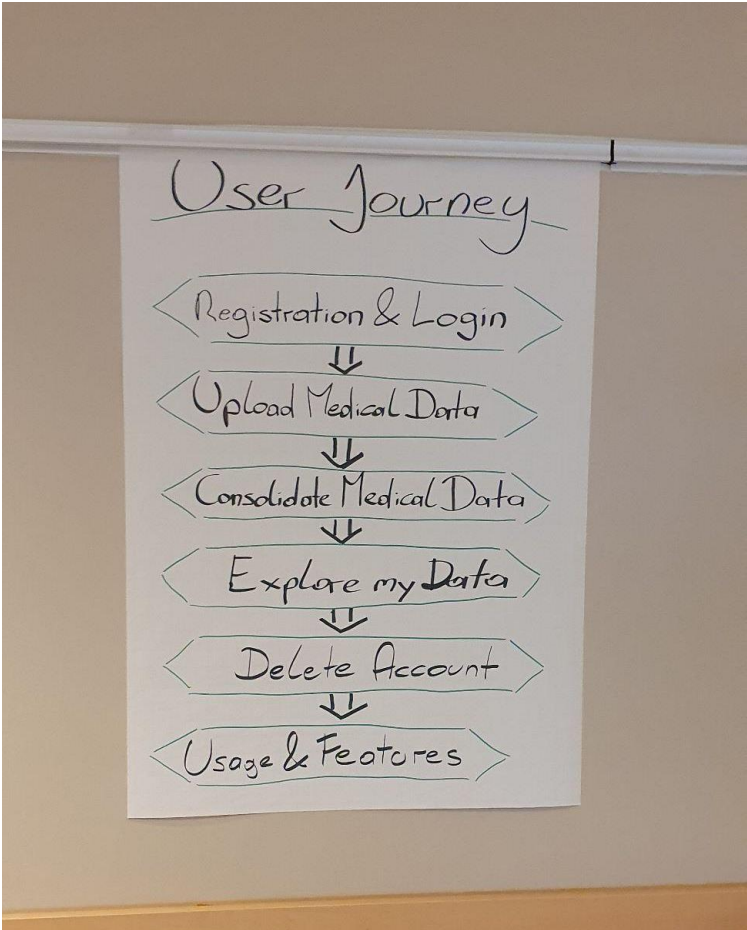 User Journey
Registration & Login
Upload Medical Data
Consolidate Medical Data
Explore my Data
Delete Account
Usage & Features